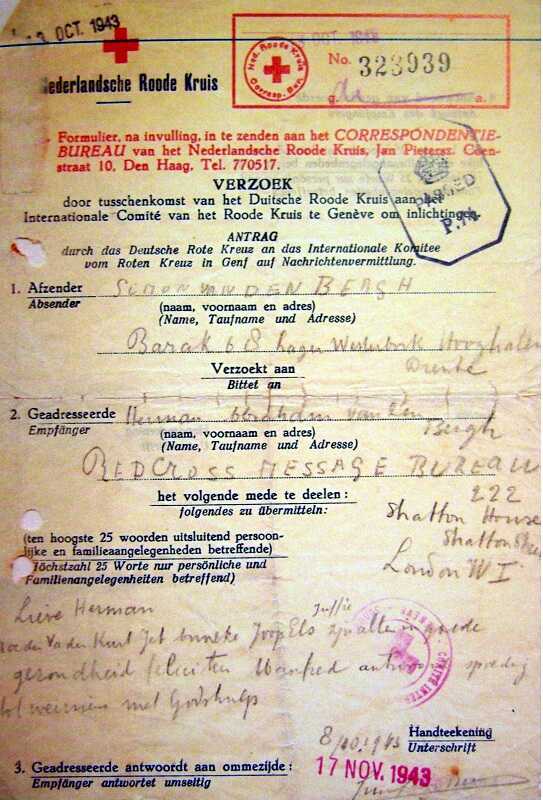 3 OCT. 1943
Nederlandsche Roode Kruis
Ned. Roode Kruis
Corresp. Bur.
OCT. 1943
No. 323939
Formulier, na invulling, in te zenden aan het CORRESPONDENTIE-
BUREAU van het Nederlandsche Roode Kruis, Jan Pietersz. Coen-
straat 10, Den Haag. Tel. 770517.
PASSED
P.
VERZOEK
door tusschenkomst van het Duitsche Roode Kruis aan het
Internationale Comité van het Roode Kruis te Genève om inlichtingen
ANTRAG
durch das Deutsche Rote Kreuz an das Internationale Komitee
vom Roten Kreuz in Genf auf Nachrichtenvermittlung.
1. Afzender SIMON VAN DEN BERGH
Absender
(naam, voornaam en adres)
(Name, Taufname und Adresse)
Barak 68 Lager Westerbork Hooghalen
Drente
Verzoekt aan
Bittet an
2. Geadresseerde Herman Abraham van den
Bergh
Empfänger
(naam, voornaam en adres)
(Name, Taufname und Adresse)
RED CROSS MESSAGE BUREAU
222
het volgende mede te deelen:
folgendes zu übermitteln:
Stratton House
Stratton
London W I
(ten hoogste 25 woorden uitsluitend persoon-
lijke en familieaangelegenheden betreffende)
(Höchstzahl 25 Worte nur persönliche und
Familienangelegenheiten betreffend)
Lieve Herman
Juffie
Kurt Jet Joop Els zijn allen in goede
gezondheid Manfred antwoord spoedig
tot weerziens met Godshulp
COMITÉ INTER
8/10.1943
Handteekening
Unterschrift
17 NOV. 1943
3. Geadresseerde antwoordt aan ommezijde:
Empfänger antwortet umseitig